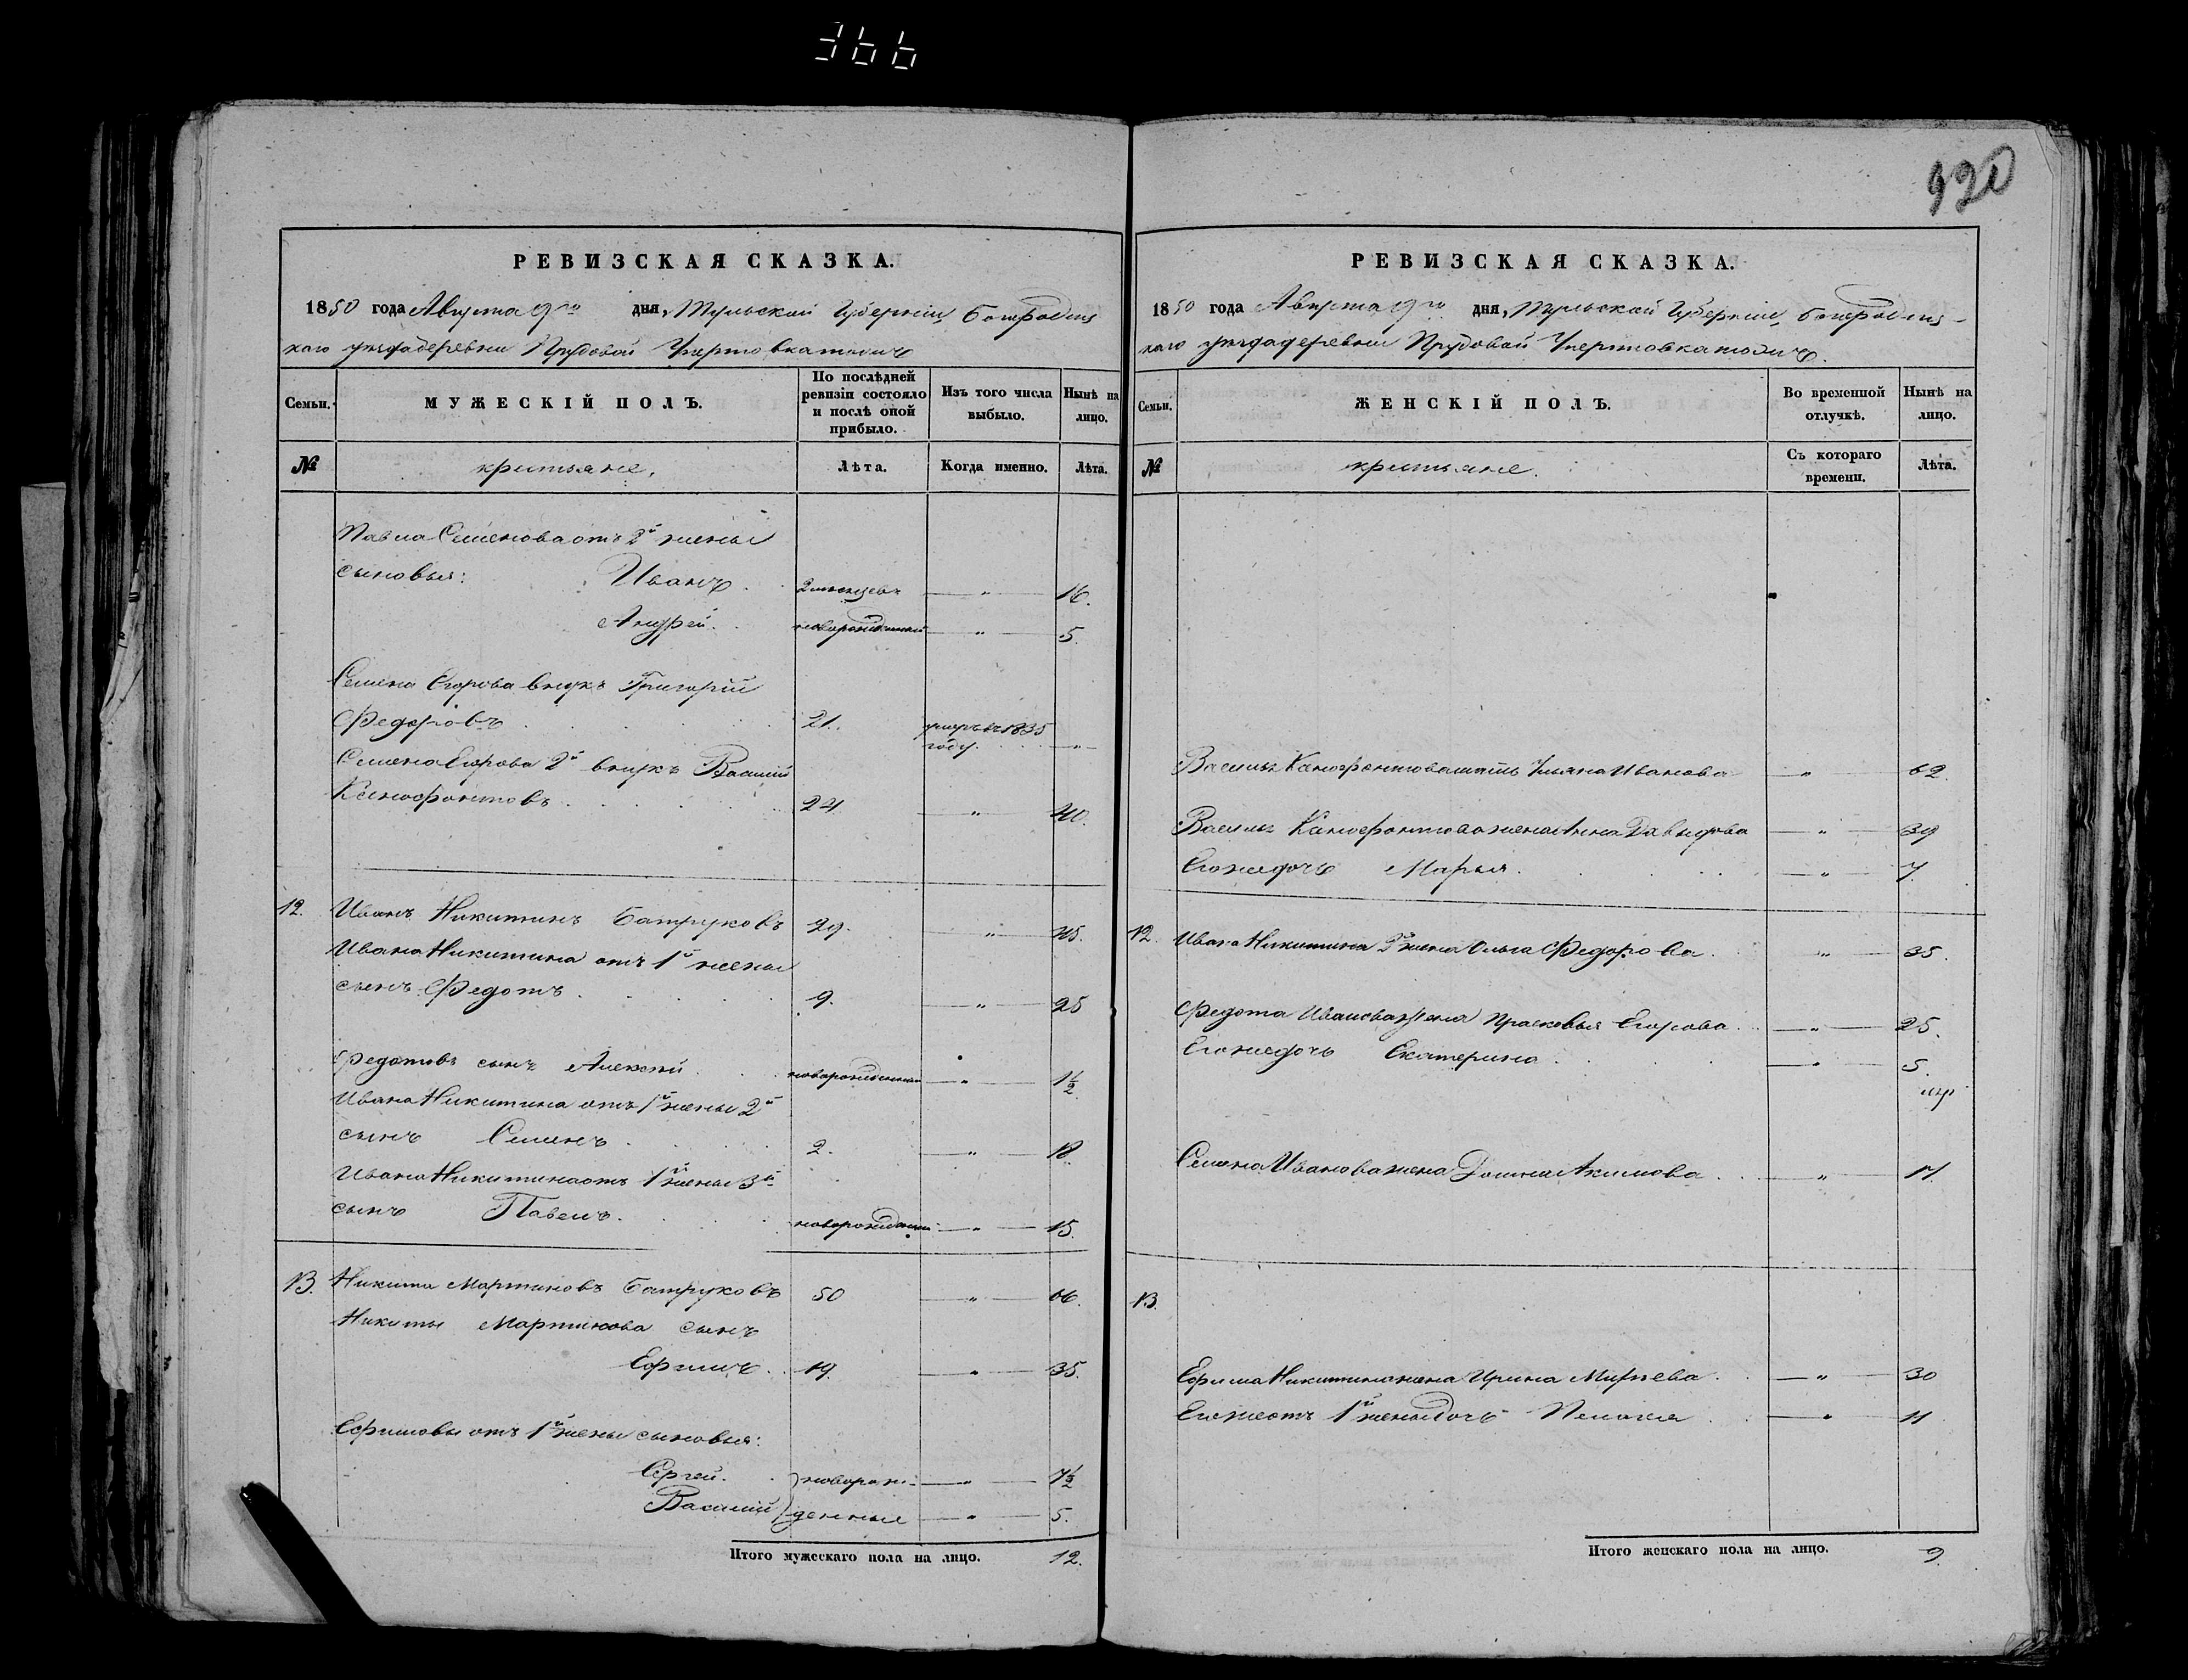 366
920
РЕВИЗСКАЯ СКАЗКА.
1850 года Августа 9го дня, Тульской Губернiи, Богородиц
каго уезда деревни Прудовой Чертовка тожъ
Семьи. МУЖЕСКІЙ ПОЛЪ. По послѣдней ревизіи состояло и послѣ оной прибыло. Изъ того числа выбыло. Нынѣ на лицо.
№ кристьяне. Лѣта. Когда именно. Лѣта.
Павла Семенова отъ 2й жены
сыновья: Иванъ. 2 месецевъ " 16.
Андрей. новорожденный " 5.
Семена Егорова внукъ Григорій
Федоровъ 21. умеръ въ 1835 году. "
Семена Егорова 2й внукъ Василій
Ксенофонтовъ 24 " 40.
12. Иванъ Никитинъ Батруковъ 29. " 45.
Ивана Никитина отъ 1й жены
сынъ Федотъ 9. " 25
Федотовъ сынъ Алексѣй новорожденный " 1½
Ивана Никитина отъ 1й жены 2й
сынъ Семенъ 2. " 18.
Ивана Никитина отъ 1й жены 3й
сынъ Павелъ. новорожденный " 15.
13. Никита Мартиновъ Батруковъ 50 " 66.
Никиты Мартинова сынъ
Ефимъ. 19. " 35.
Ефимовы отъ 1й жены сыновья:
Сергей. новорож- " 7½
Василій денные " 5.
Итого мужескаго пола на лицо. 12.
РЕВИЗСКАЯ СКАЗКА.
1850 года Августа 9го дня, Тульской Губерніи, Богородиц-
каго уезда деревни Прудовой Чертовка тожъ.
Семьи. ЖЕНСКІЙ ПОЛЪ. Во временной отлучкѣ. Нынѣ на лицо.
№ кристьяне. Съ котораго времени. Лѣта.
Василья Ксенофонтова мать Ульяна Иванова " 62.
Василья Ксенофонтова жена Анна Давыдова " 39
Егоже дочь Марья. " 7.
12. Ивана Никитина 2й жена Ольга Федорова. " 35.
Федота Иванова жена Прасковья Егорова " 25.
Егоже дочь Екатерина " 5.
Семена Иванова жена Домна Акимова " 17.
13.
Ефима Никитина жена Ирина " 30
Егоже отъ 1й жены дочь Пелагея " 11
Итого женскаго пола на лицо. 9.